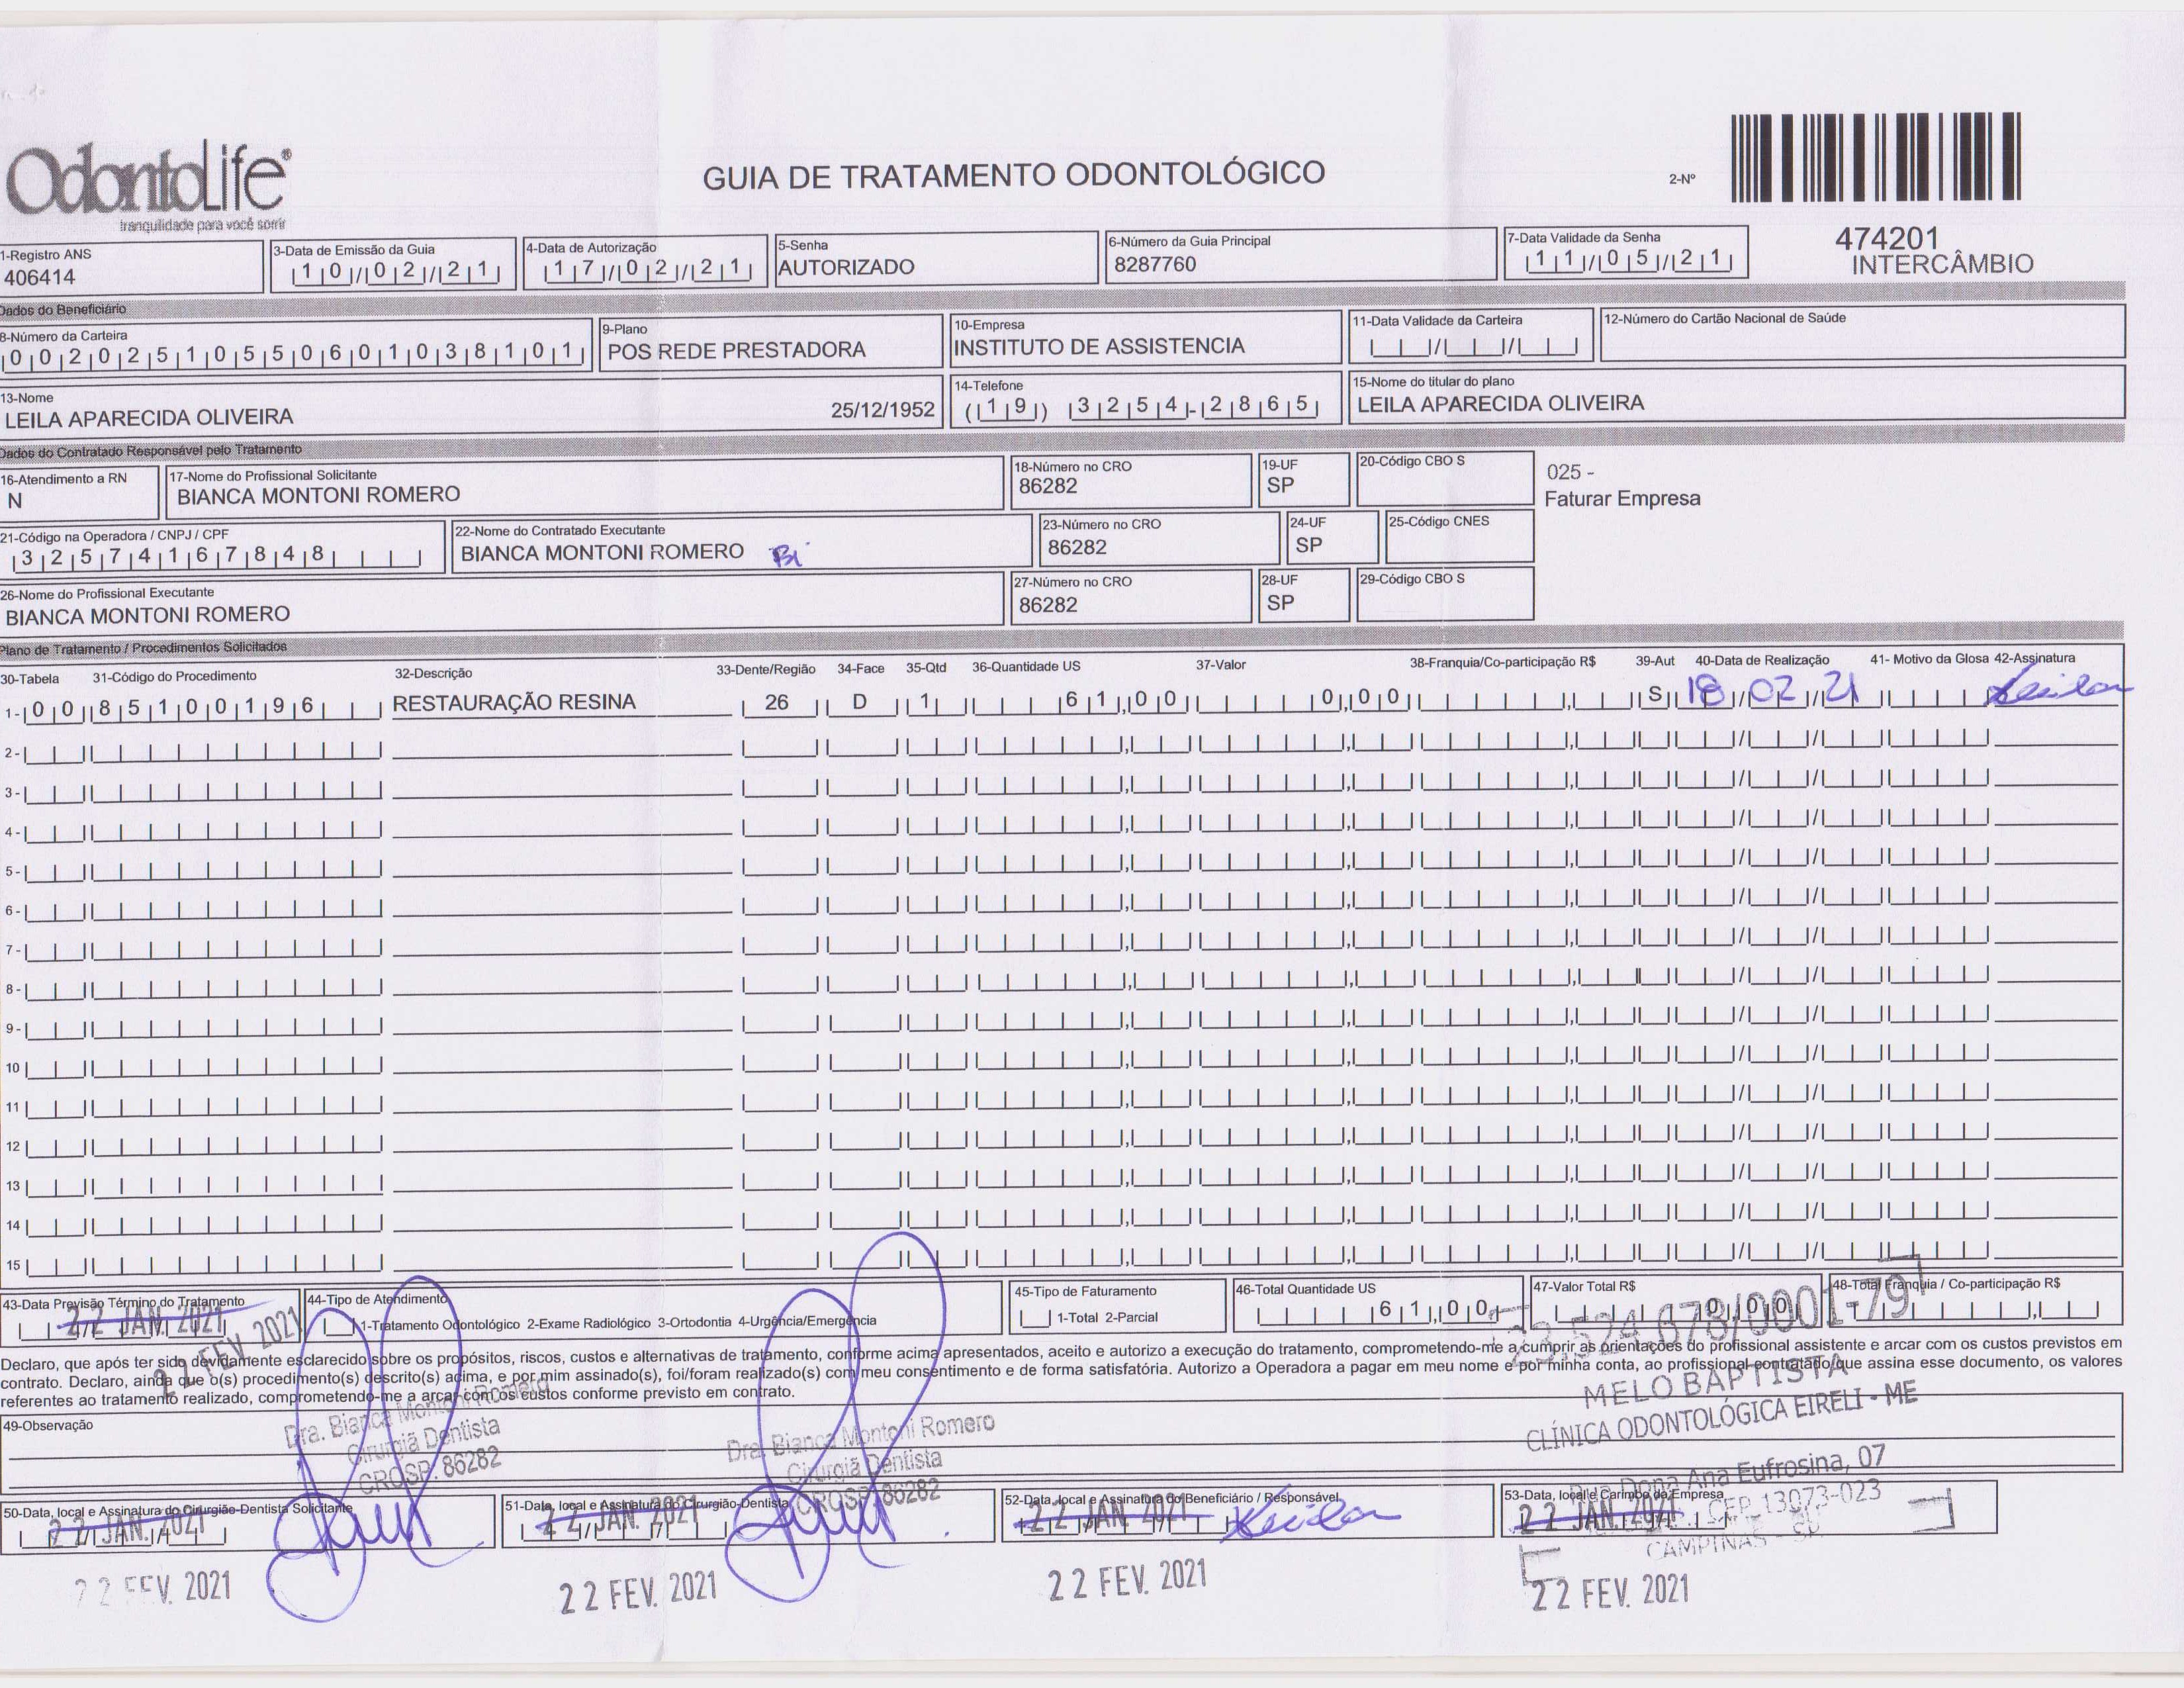 OdontoLife®
tranquilidade para você sorrir
GUIA DE TRATAMENTO ODONTOLÓGICO
2-Nº
474201
INTERCÂMBIO
1-Registro ANS
406414
3-Data de Emissão da Guia
10/02/21
4-Data de Autorização
17/02/21
5-Senha
AUTORIZADO
6-Número da Guia Principal
8287760
7-Data Validade da Senha
11/05/21
Dados do Beneficiário
8-Número da Carteira
00202510550601038101
9-Plano
POS REDE PRESTADORA
10-Empresa
INSTITUTO DE ASSISTENCIA
11-Data Validade da Carteira
12-Número do Cartão Nacional de Saúde
13-Nome
LEILA APARECIDA OLIVEIRA 25/12/1952
14-Telefone
(19) 3254-2865
15-Nome do titular do plano
LEILA APARECIDA OLIVEIRA
Dados do Contratado Responsável pelo Tratamento
16-Atendimento a RN
N
17-Nome do Profissional Solicitante
BIANCA MONTONI ROMERO
18-Número no CRO
86282
19-UF
SP
20-Código CBO S
025 -
Faturar Empresa
21-Código na Operadora / CNPJ / CPF
32574167848
22-Nome do Contratado Executante
BIANCA MONTONI ROMERO Bi
23-Número no CRO
86282
24-UF
SP
25-Código CNES
26-Nome do Profissional Executante
BIANCA MONTONI ROMERO
27-Número no CRO
86282
28-UF
SP
29-Código CBO S
Plano de Tratamento / Procedimentos Solicitados
30-Tabela 31-Código do Procedimento 32-Descrição 33-Dente/Região 34-Face 35-Qtd 36-Quantidade US 37-Valor 38-Franquia/Co-participação R$ 39-Aut 40-Data de Realização 41- Motivo da Glosa 42-Assinatura
1- 00 85100196 RESTAURAÇÃO RESINA 26 D 1 61,00 0,00 S 18/02/21 Leila
2-
3-
4-
5-
6-
7-
8-
9-
10
11
12
13
14
15
43-Data Previsão Término do Tratamento
22 JAN. 2021
22 FEV. 2021
44-Tipo de Atendimento
1-Tratamento Odontológico 2-Exame Radiológico 3-Ortodontia 4-Urgência/Emergência
45-Tipo de Faturamento
1-Total 2-Parcial
46-Total Quantidade US
61,00
47-Valor Total R$
0,00
48-Total Franquia / Co-participação R$
Declaro, que após ter sido devidamente esclarecido sobre os propósitos, riscos, custos e alternativas de tratamento, conforme acima apresentados, aceito e autorizo a execução do tratamento, comprometendo-me a cumprir as orientações do profissional assistente e arcar com os custos previstos em
contrato. Declaro, ainda que o(s) procedimento(s) descrito(s) acima, e por mim assinado(s), foi/foram realizado(s) com meu consentimento e de forma satisfatória. Autorizo a Operadora a pagar em meu nome e por minha conta, ao profissional contratado que assina esse documento, os valores
referentes ao tratamento realizado, comprometendo-me a arcar com os custos conforme previsto em contrato.
49-Observação
Dra. Bianca Montoni Romero
Cirurgiã Dentista
CROSP. 86282
Dra. Bianca Montoni Romero
Cirurgiã Dentista
CROSP. 86282
23.524.678/0001-79
MELO BAPTISTA
CLÍNICA ODONTOLÓGICA EIRELI - ME
Dona Ana Eufrosina, 07
CEP 13073-023
CAMPINAS - SP
50-Data, local e Assinatura do Cirurgião-Dentista Solicitante
22 JAN. 2021
51-Data, local e Assinatura do Cirurgião-Dentista
22 JAN. 2021
52-Data, local e Assinatura do Beneficiário / Responsável
22 JAN. 2021 Leila
53-Data, local e Carimbo da Empresa
22 JAN. 2021
22 FEV. 2021
22 FEV. 2021
22 FEV. 2021
22 FEV. 2021